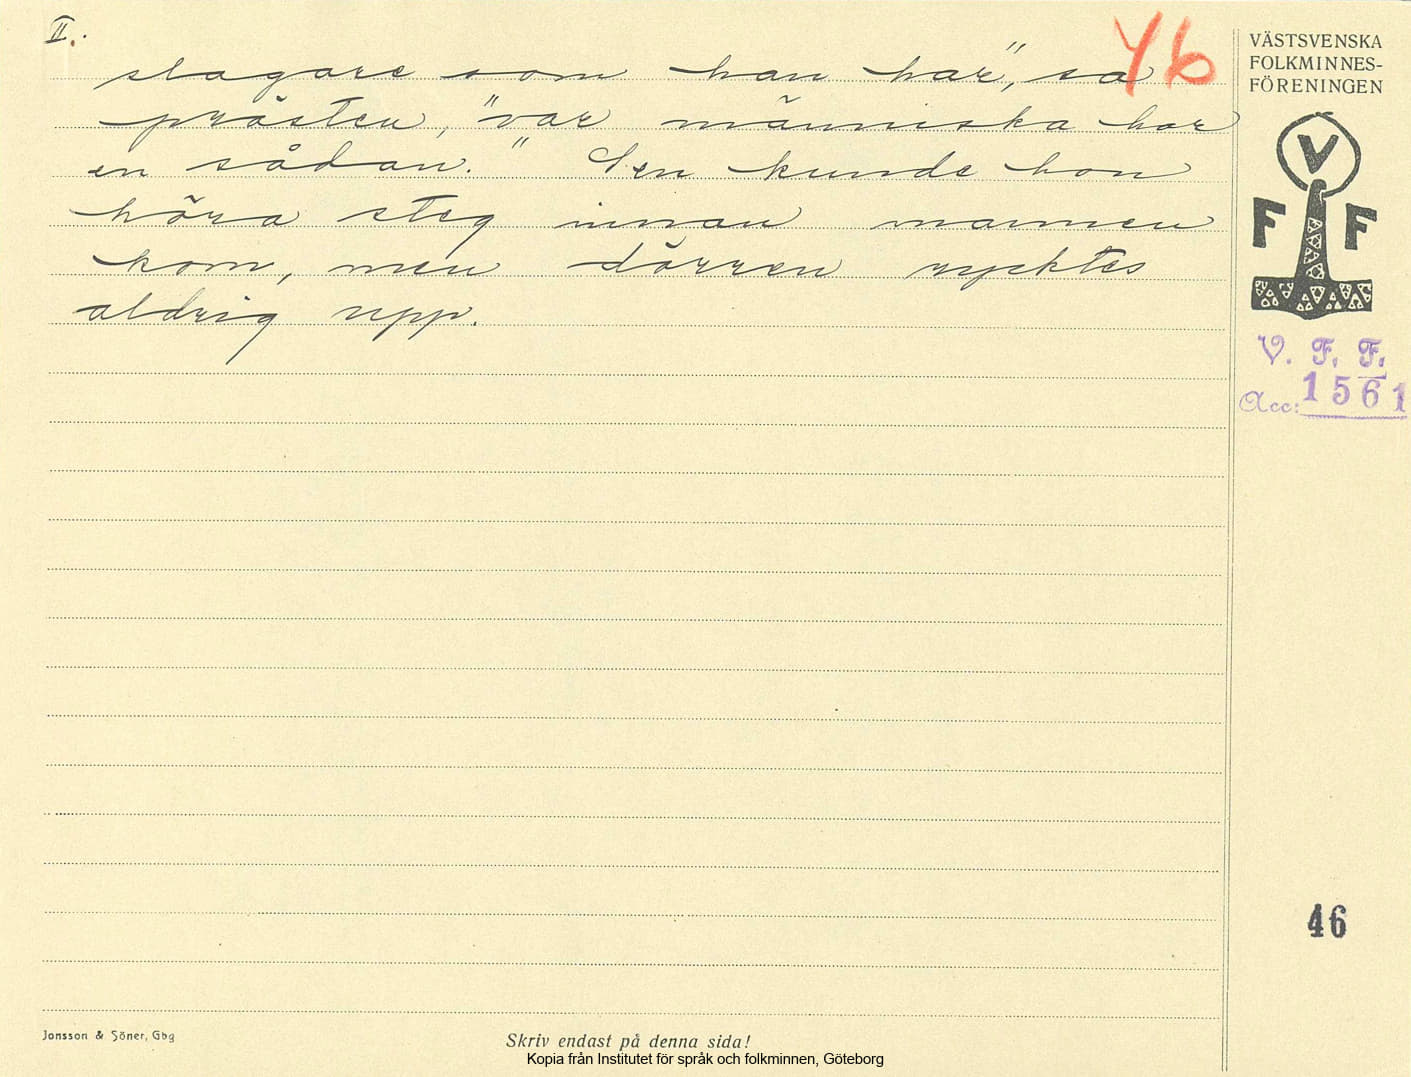 II.
slagare som han har", sa
prästen, "var människa har
en sådan." Sen kunde hon
höra steg innan mannen
kom, men dörren rycktes
aldrig upp.
46
VÄSTSVENSKA
FOLKMINNES-
FÖRENINGEN
V
F F
V. F. F.
Acc: 1561
46
Jonsson & Söner, Gbg
Skriv endast på denna sida!
Kopia från Institutet för språk och folkminnen, Göteborg